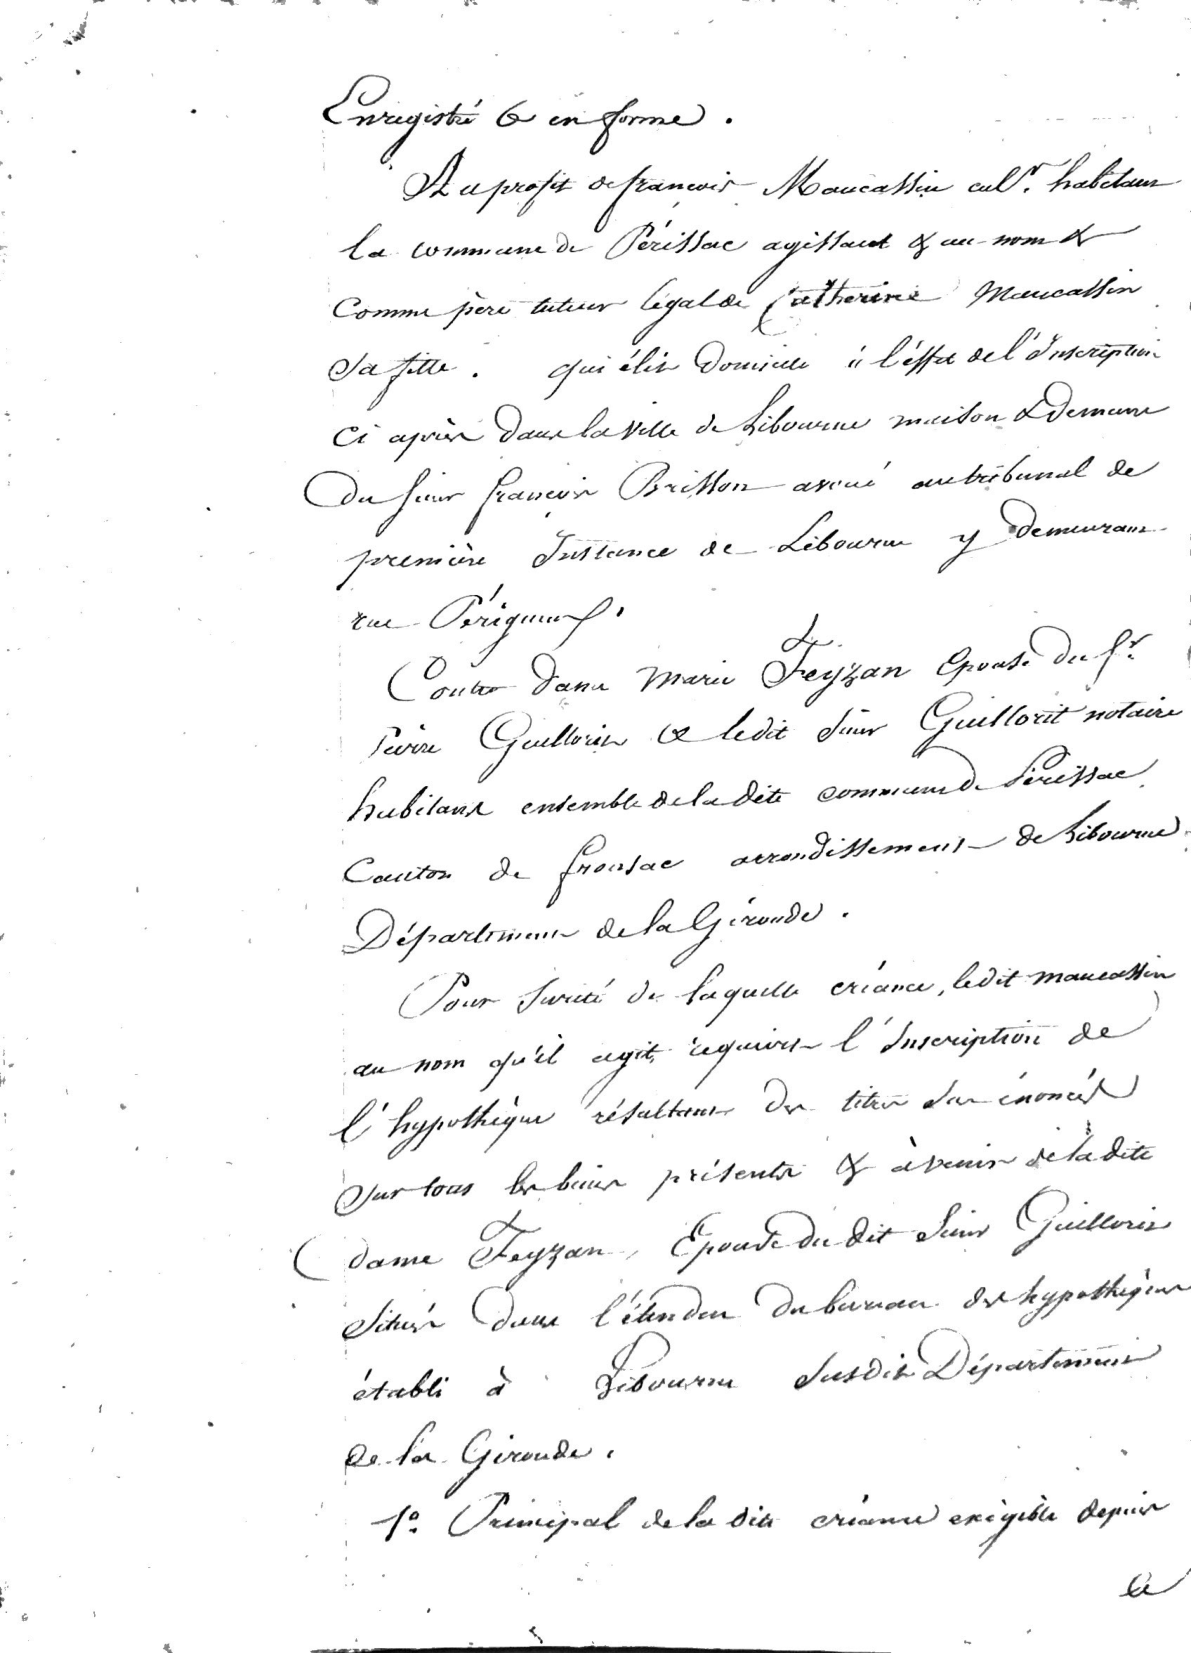 Enregistré & en forme.
Au profit de francois Maucassin cult.r habitant
la commune de Périssac agissant & au nom &
comme père tuteur légal de Catherine Maucassin
sa fille. qui élit domicile à l'éffet de l'Inscription
ci après dans la ville de Libourne maison & demeure
du sieur françois Brisson avoué au tribunal de
première Instance de Libourne y demeurant
rue Périgueux.
Contre dame Marie Feyzan Epouse du s.r
Pierre Guillorit & le dit sieur Guillorit notaire
habitant ensemble de la dite commune de Périssac
Canton de fronsac arrondissement de Libourne
Département de la Gironde.
Pour sureté de laquelle créance, le dit maucassin
au nom qu'il agit, requiert l'Inscription de
l'hypothèque résultant des titres sus énoncés
sur tous les biens présents & à venir de la dite
dame Feyzan, Epouse du dit sieur Guillorit
situés dans l'étendue du bureau des hypothèques
établi à Libourne susdit Département
de la Gironde.
1.o Principal de la dite créance exigible depuis